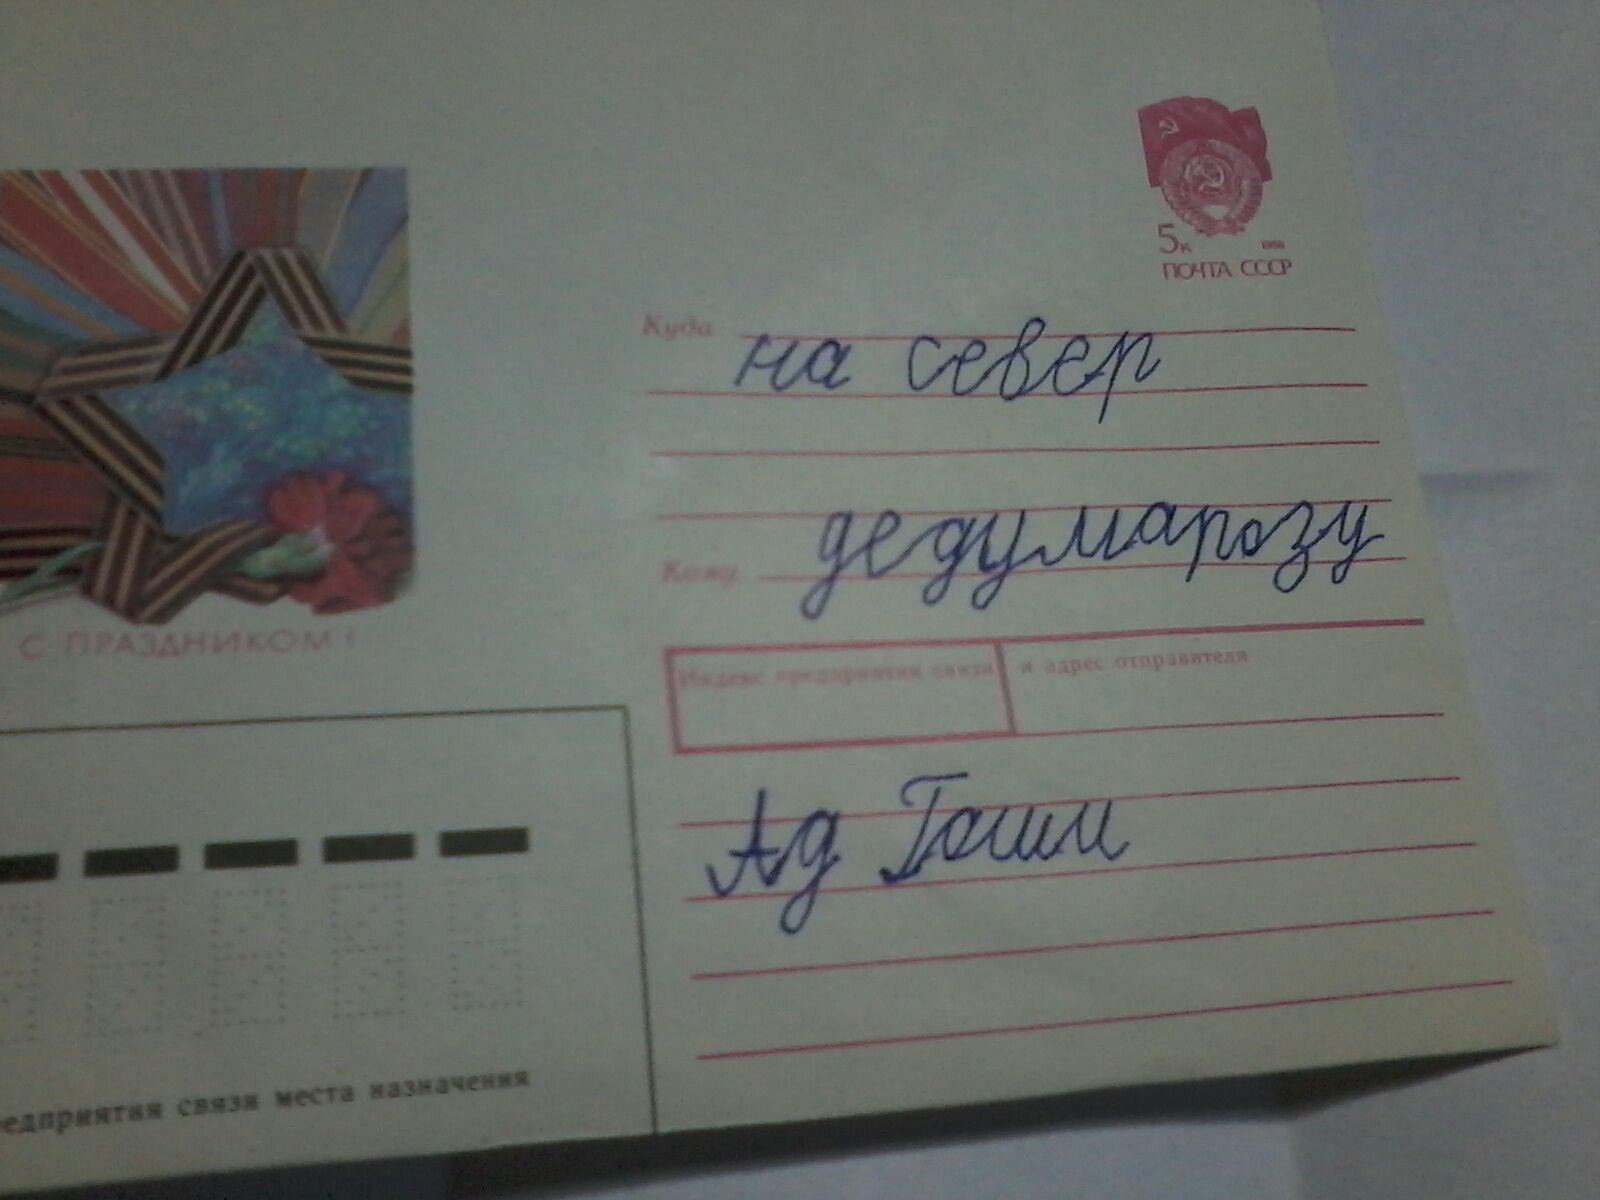 5к
1988
ПОЧТА СССР
Куда
на север
дедумарозу
Кому
С ПРАЗДНИКОМ!
Индекс предприятия связи и адрес отправителя
Ад Гоши
едприятия связи места назначения